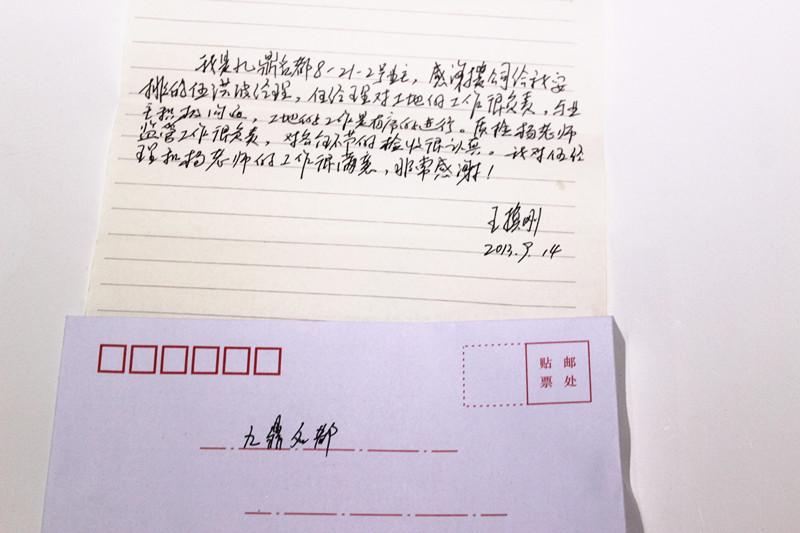 我是九鼎名都8-21-2号业主，感谢贵公司给我安
排的伍洪波经理，伍经理对工地的工作很负责，与业
主积极沟通，工地的工作是有序的进行。质检杨老师
监管工作很负责，对各个环节的检收很认真。我对伍经
理和杨老师的工作很满意，非常感谢！
王
2013.9.14
贴邮
票处
九鼎名都